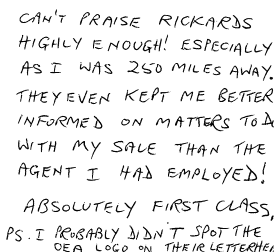 CAN'T PRAISE RICKARDS
HIGHLY ENOUGH! ESPECIALLY
AS I WAS 250 MILES AWAY.
THEY EVEN KEPT ME BETTER
INFORMED ON MATTERS TO DO
WITH MY SALE THAN THE
AGENT I HAD EMPLOYED!
ABSOLUTELY FIRST CLASS.
PS. I PROBABLY DIDN'T SPOT THE
LOGO ON THEIR